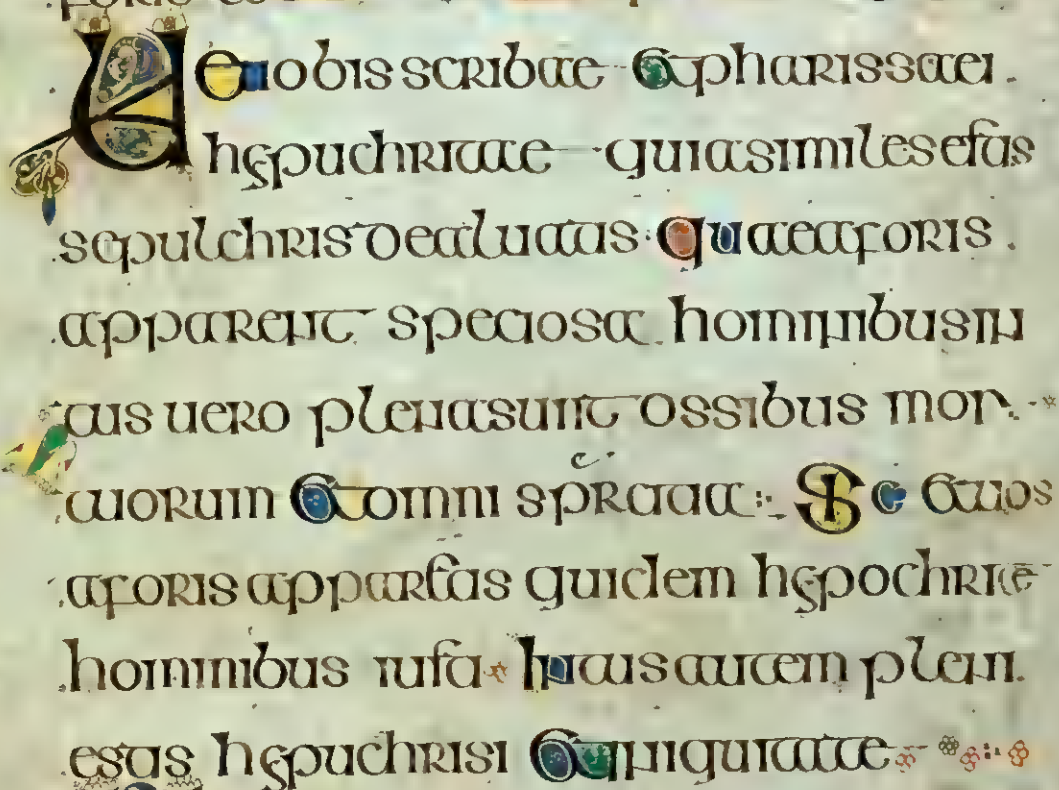 Ue uobis scribae et pharissaei .
hypuchritae quia similes estis
sepulchris dealuatis quae aforis .
apparent speciosa hominibus in
tus uero plena sunt ossibus mor
tuorum et omni Sic et uos
aforis apparetis quidem hypochrite
hominibus iusti Intus autem pleni .
estis hypuchrisi et iniquitate